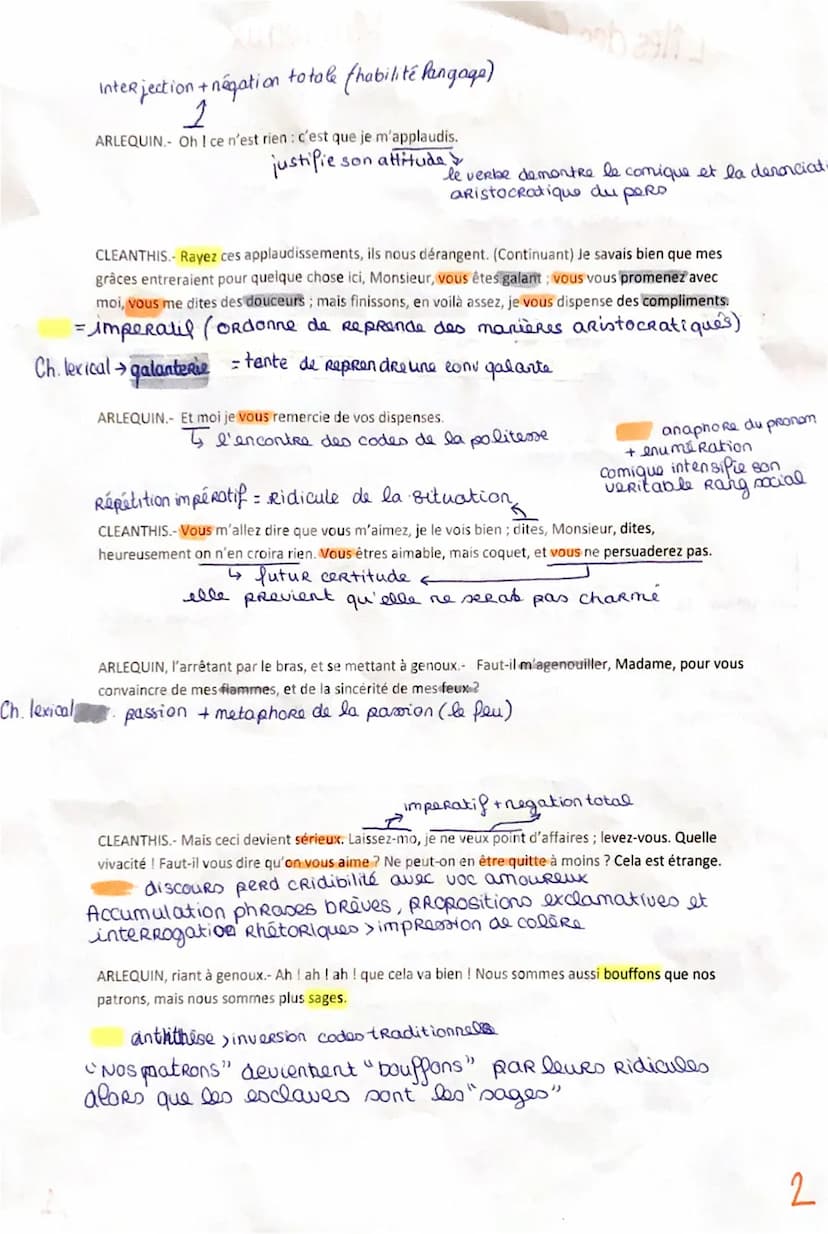 Interjection + négation totale (habilité langage)
ARLEQUIN.- Oh ! ce n'est rien : c'est que je m'applaudis.
justifie son attitude
le verbe demontre le comique et la denonciati
aristocratique du perso
CLEANTHIS.- Rayez ces applaudissements, ils nous dérangent. (Continuant) Je savais bien que mes
grâces entreraient pour quelque chose ici, Monsieur, vous êtes galant ; vous vous promenez avec
moi, vous me dites des douceurs ; mais finissons, en voilà assez, je vous dispense des compliments.
= imperatif (ordonne de reprende des manières aristocratiques)
Ch. lexical → galanterie = tente de reprendre une conv galante
ARLEQUIN.- Et moi je vous remercie de vos dispenses.
↳ l'encontre des codes de la politesse
anaphore du pronom
+ enumération
comique intensifie son
veritable rang social
Répétition impératif = ridicule de la situation
CLEANTHIS.- Vous m'allez dire que vous m'aimez, je le vois bien ; dites, Monsieur, dites,
heureusement on n'en croira rien. Vous êtres aimable, mais coquet, et vous ne persuaderez pas.
↳ futur certitude
elle previent qu'elle ne serat pas charmé
ARLEQUIN, l'arrêtant par le bras, et se mettant à genoux.- Faut-il m'agenouiller, Madame, pour vous
convaincre de mes flammes, et de la sincérité de mes feux ?
Ch. lexical passion + metaphore de la passion (le feu)
imperatif + negation total
CLEANTHIS.- Mais ceci devient sérieux. Laissez-mo, je ne veux point d'affaires ; levez-vous. Quelle
vivacité ! Faut-il vous dire qu'on vous aime ? Ne peut-on en être quitte à moins ? Cela est étrange.
discours perd cridibilité avec voc amoureux
Accumulation phrases brèves, propositions exclamatives et
interrogation rhétoriques > impression de colère
ARLEQUIN, riant à genoux.- Ah ! ah ! ah ! que cela va bien ! Nous sommes aussi bouffons que nos
patrons, mais nous sommes plus sages.
antithèse > inversion codes traditionnels
"Nos patrons" deviennent "bouffons" par leurs ridicules
alors que les esclaves sont les "sages"
2